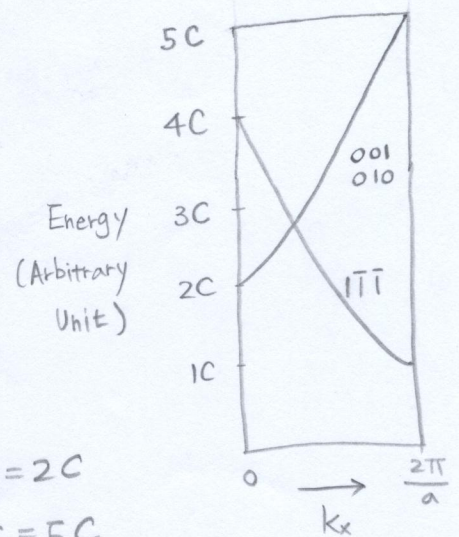 5C
4C
3C
2C
1C
Energy
(Arbitrary
Unit)
001
010
11̄1̄
= 2C
= 5C
0
→
2π/a
kx